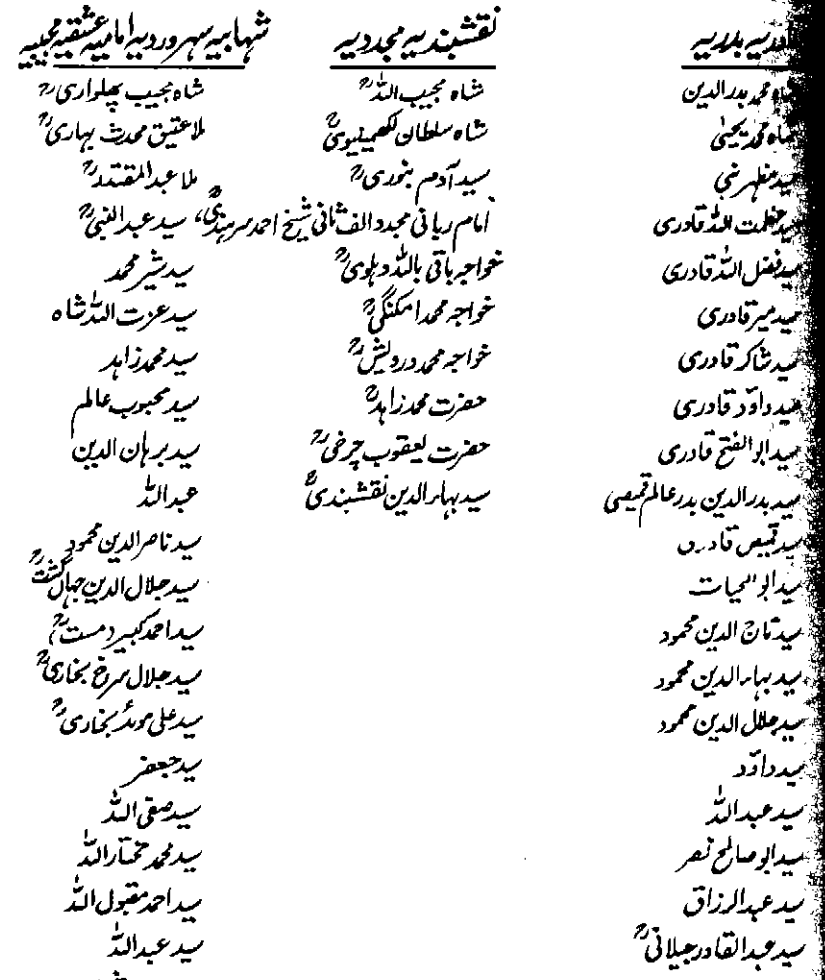 قادریہ بدریہ
شاہ محمد بدرالدین
شاہ محمد یحییٰ
سید مظہر نبی
سید عظمت اللہ قادری
سید فضل اللہ قادری
سید میر قادری
سید شاکر قادری
سید داؤد قادری
سید ابوالفتح قادری
سید بدرالدین بدر عالم قمیصی
سید قمیص قادری
سید ابوالحیات
سید تاج الدین محمود
سید بہاءالدین محمود
سید جلال الدین محمود
سید داؤد
سید عبداللہ
سید ابوصالح نصر
سید عبدالرزاق
سید عبدالقادر جیلانیؒ
نقشبندیہ مجددیہ
شاہ مجیب اللہؒ
شاہ سلطان لکھمینیویؒ
سید آدم بنوریؒ
امام ربانی مجدد الف ثانی شیخ احمد سرہندیؒ،
خواجہ باقی باللہ دہلویؒ
خواجہ محمد امکنگیؒ
خواجہ محمد درویشؒ
حضرت محمد زاہدؒ
حضرت یعقوب چرخیؒ
سید بہاءالدین نقشبندیؒ
شہابیہ سہروردیہ امامیہ عشقیہ مجیبیہ
شاہ مجیب پھلواریؒ
ملا عتیق محدث بہاریؒ
ملا عبدالمقتدرؒ
سید عبدالنبیؒ
سید شیر محمد
سید عزت اللہ شاہ
سید محمد زاہد
سید محبوب عالم
سید برہان الدین
عبداللہ
سید ناصرالدین محمود
سید جلال الدین جہاں گشتؒ
سید احمد کبیر دمستؒ
سید جلال سرخ بخاریؒ
سید علی موئد بخاریؒ
سید جعفر
سید صفی اللہ
سید محمد مختار اللہ
سید احمد مقبول اللہ
سید عبداللہ